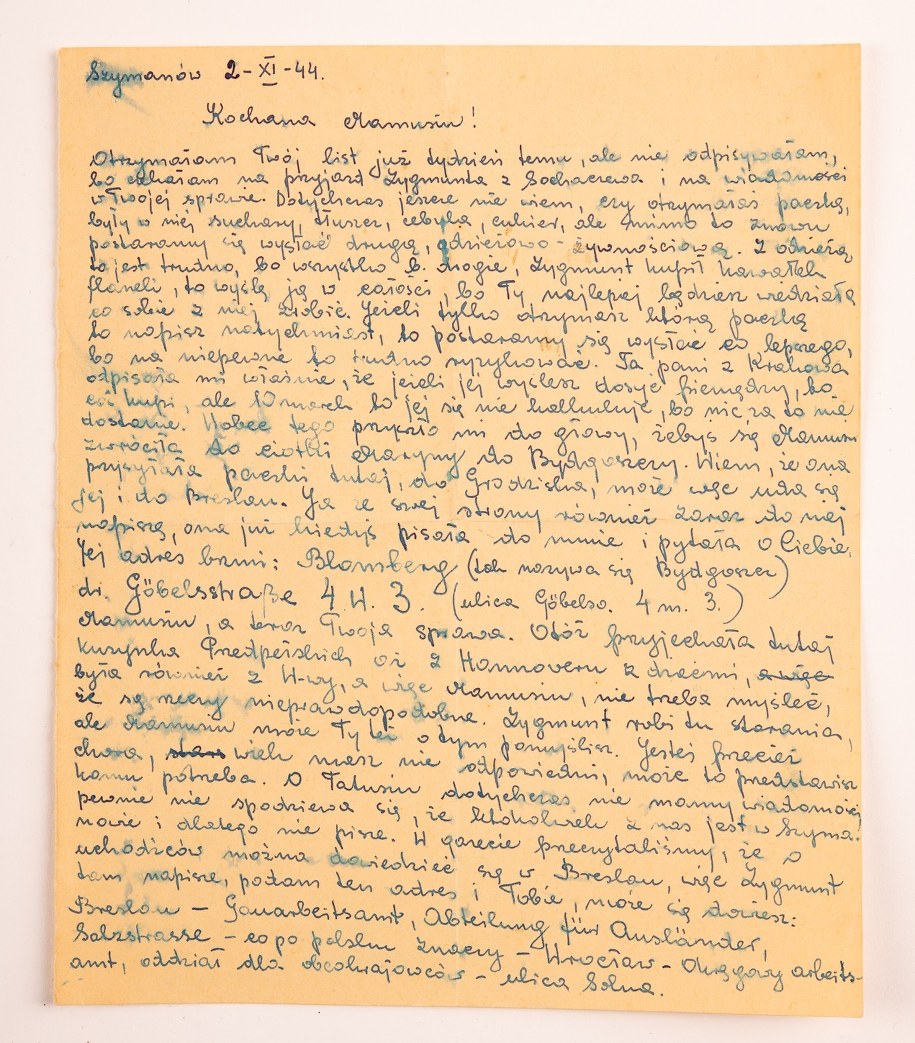 Szymanów 2-XI-44.
Kochana Mamusiu!
Otrzymałam Twój list już tydzień temu, ale nie odpisywałam,
bo czekałam na przyjazd Zygmunta z Sochaczewa i na wiadomości
w Twojej sprawie. Dotychczas jeszcze nie wiem, czy otrzymałaś paczkę,
były w niej suchary, tłuszcz, cebula, cukier, ale mimo to znowu
postaramy się wysłać drugą, odzieżowo-żywnościową. Z odzieżą
to jest trudno, bo wszystko b. drogie, Zygmunt kupił kawałek
flaneli, to wyślę ją w całości, bo Ty, najlepiej będziesz wiedziała
co sobie z niej zrobić. Jeżeli tylko otrzymasz którą paczkę
to napisz natychmiast, to postaramy się wysłać co lepszego,
bo na niepewne to trudno ryzykować. Ta pani z Krakowa
odpisała mi właśnie, że jeżeli jej wyślesz dosyć pieniędzy, to
coś kupi, ale 10 marek to jej się nie kalkuluje, bo nic za to nie
dostanie. Wobec tego przyszło mi do głowy, żebyś się Mamusiu
zwróciła do ciotki Maryny do Bydgoszczy. Wiem, że ona
przysyłała paczki tutaj, do Grodziska, może więc uda się
jej i do Breslau. Ja ze swej strony również zaraz do niej
napiszę, ona już kiedyś pisała do mnie i pytała o Ciebie.
Jej adres brzmi: Blomsberg (tak nazywa się Bydgoszcz)
dr. Göbelsstraße 4 W. 3. (ulica Göbelsa. 4 m. 3.)
Mamusiu, a teraz Twoja sprawa. Otóż przyjechała tutaj
kuzynka Przedpełskich aż z Hannoveru z dziećmi, a więc
była również z W-wy, a więc Mamusiu, nie trzeba myśleć,
że są rzeczy nieprawdopodobne. Zygmunt robi tu starania,
ale Mamusiu może Ty też o tym pomyślisz. Jesteś przecież
chora, wiek masz nie odpowiedni, może to przedstawisz
komu potrzeba. O Tatusiu dotychczas nie mamy wiadomości
pewnie nie spodziewa się, że ktokolwiek z nas jest w Szyma-
nowie i dlatego nie pisze. W gazecie przeczytaliśmy, że o
uchodźców można dowiedzieć się w Breslau, więc Zygmunt
tam napisze, podam ten adres i Tobie, może się dowiesz:
Breslau – Gauarbeitsamt, Abteilung für Ausländer,
Salzstrasse – co po polsku znaczy – Wrocław – Okręgowy arbeits-
amt, oddział dla obcokrajowców – ulica Solna.